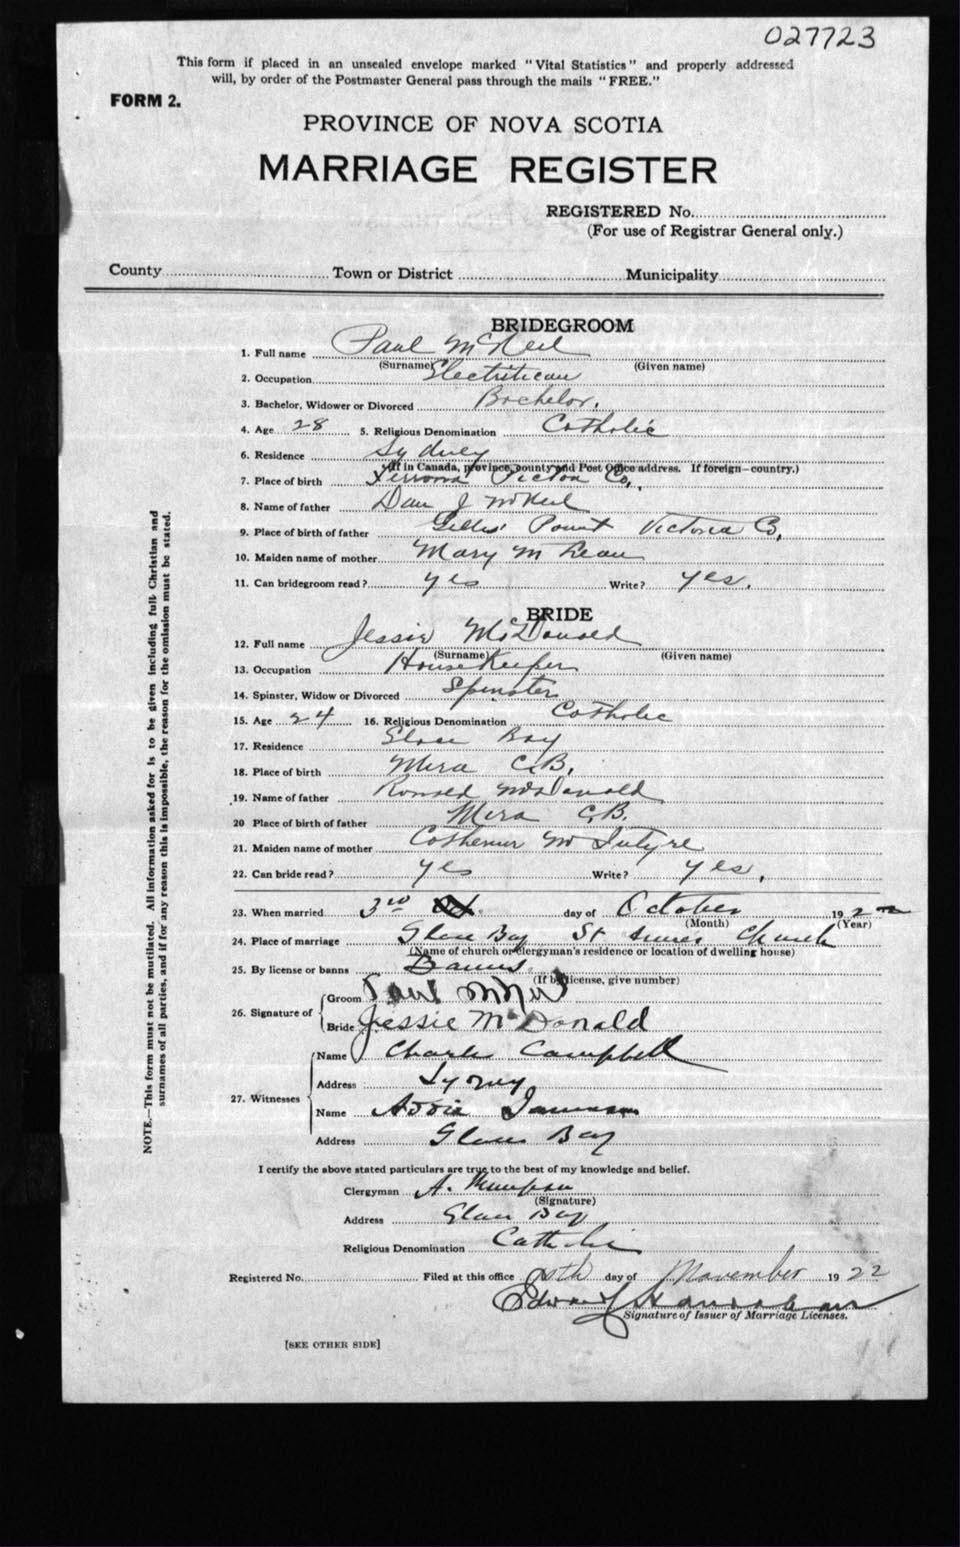 027723
This form if placed in an unsealed envelope marked "Vital Statistics" and properly addressed
will, by order of the Postmaster General pass through the mails "FREE."
FORM 2.
PROVINCE OF NOVA SCOTIA
MARRIAGE REGISTER
REGISTERED No.
(For use of Registrar General only.)
County Town or District Municipality
BRIDEGROOM
1. Full name Paul McNeil
(Surname) (Given name)
2. Occupation Electritican
3. Bachelor, Widower or Divorced Bachelor.
4. Age 28 5. Religious Denomination Catholic
6. Residence Sydney
(If in Canada, province, county and Post Office address. If foreign—country.)
7. Place of birth Ferrona Pictou Co.,
8. Name of father Dan J McNeil
9. Place of birth of father Gillis' Point Victoria Co,
10. Maiden name of mother Mary McLean
11. Can bridegroom read? yes Write? yes.
BRIDE
12. Full name Jessie McDonald
(Surname) (Given name)
13. Occupation HouseKeeper
14. Spinster, Widow or Divorced Spinster
15. Age 24 16. Religious Denomination Catholic
17. Residence Glace Bay
18. Place of birth Mira C.B.
19. Name of father Ronald McDonald
20 Place of birth of father Mira C.B.
21. Maiden name of mother McIntyre
22. Can bride read? yes Write? yes.
23. When married 3rd day of October 1922
(Month) (Year)
24. Place of marriage Glace Bay St Annes Church
(Name of church or clergyman's residence or location of dwelling house)
25. By license or banns Banns
(If by license, give number)
26. Signature of Groom Paul McNeil
Bride Jessie McDonald
27. Witnesses
Name Charles Campbell
Address Sydney
Name Addie
Address Glace Bay
I certify the above stated particulars are true to the best of my knowledge and belief.
Clergyman A.
(Signature)
Address Glace Bay
Religious Denomination Catholic
Registered No. Filed at this office day of November 1922
Edward
Signature of Issuer of Marriage Licenses.
[SEE OTHER SIDE]
NOTE.—This form must not be mutilated. All information asked for is to be given including full Christian and
surnames of all parties, and if for any reason this is impossible, the reason for the omission must be stated.